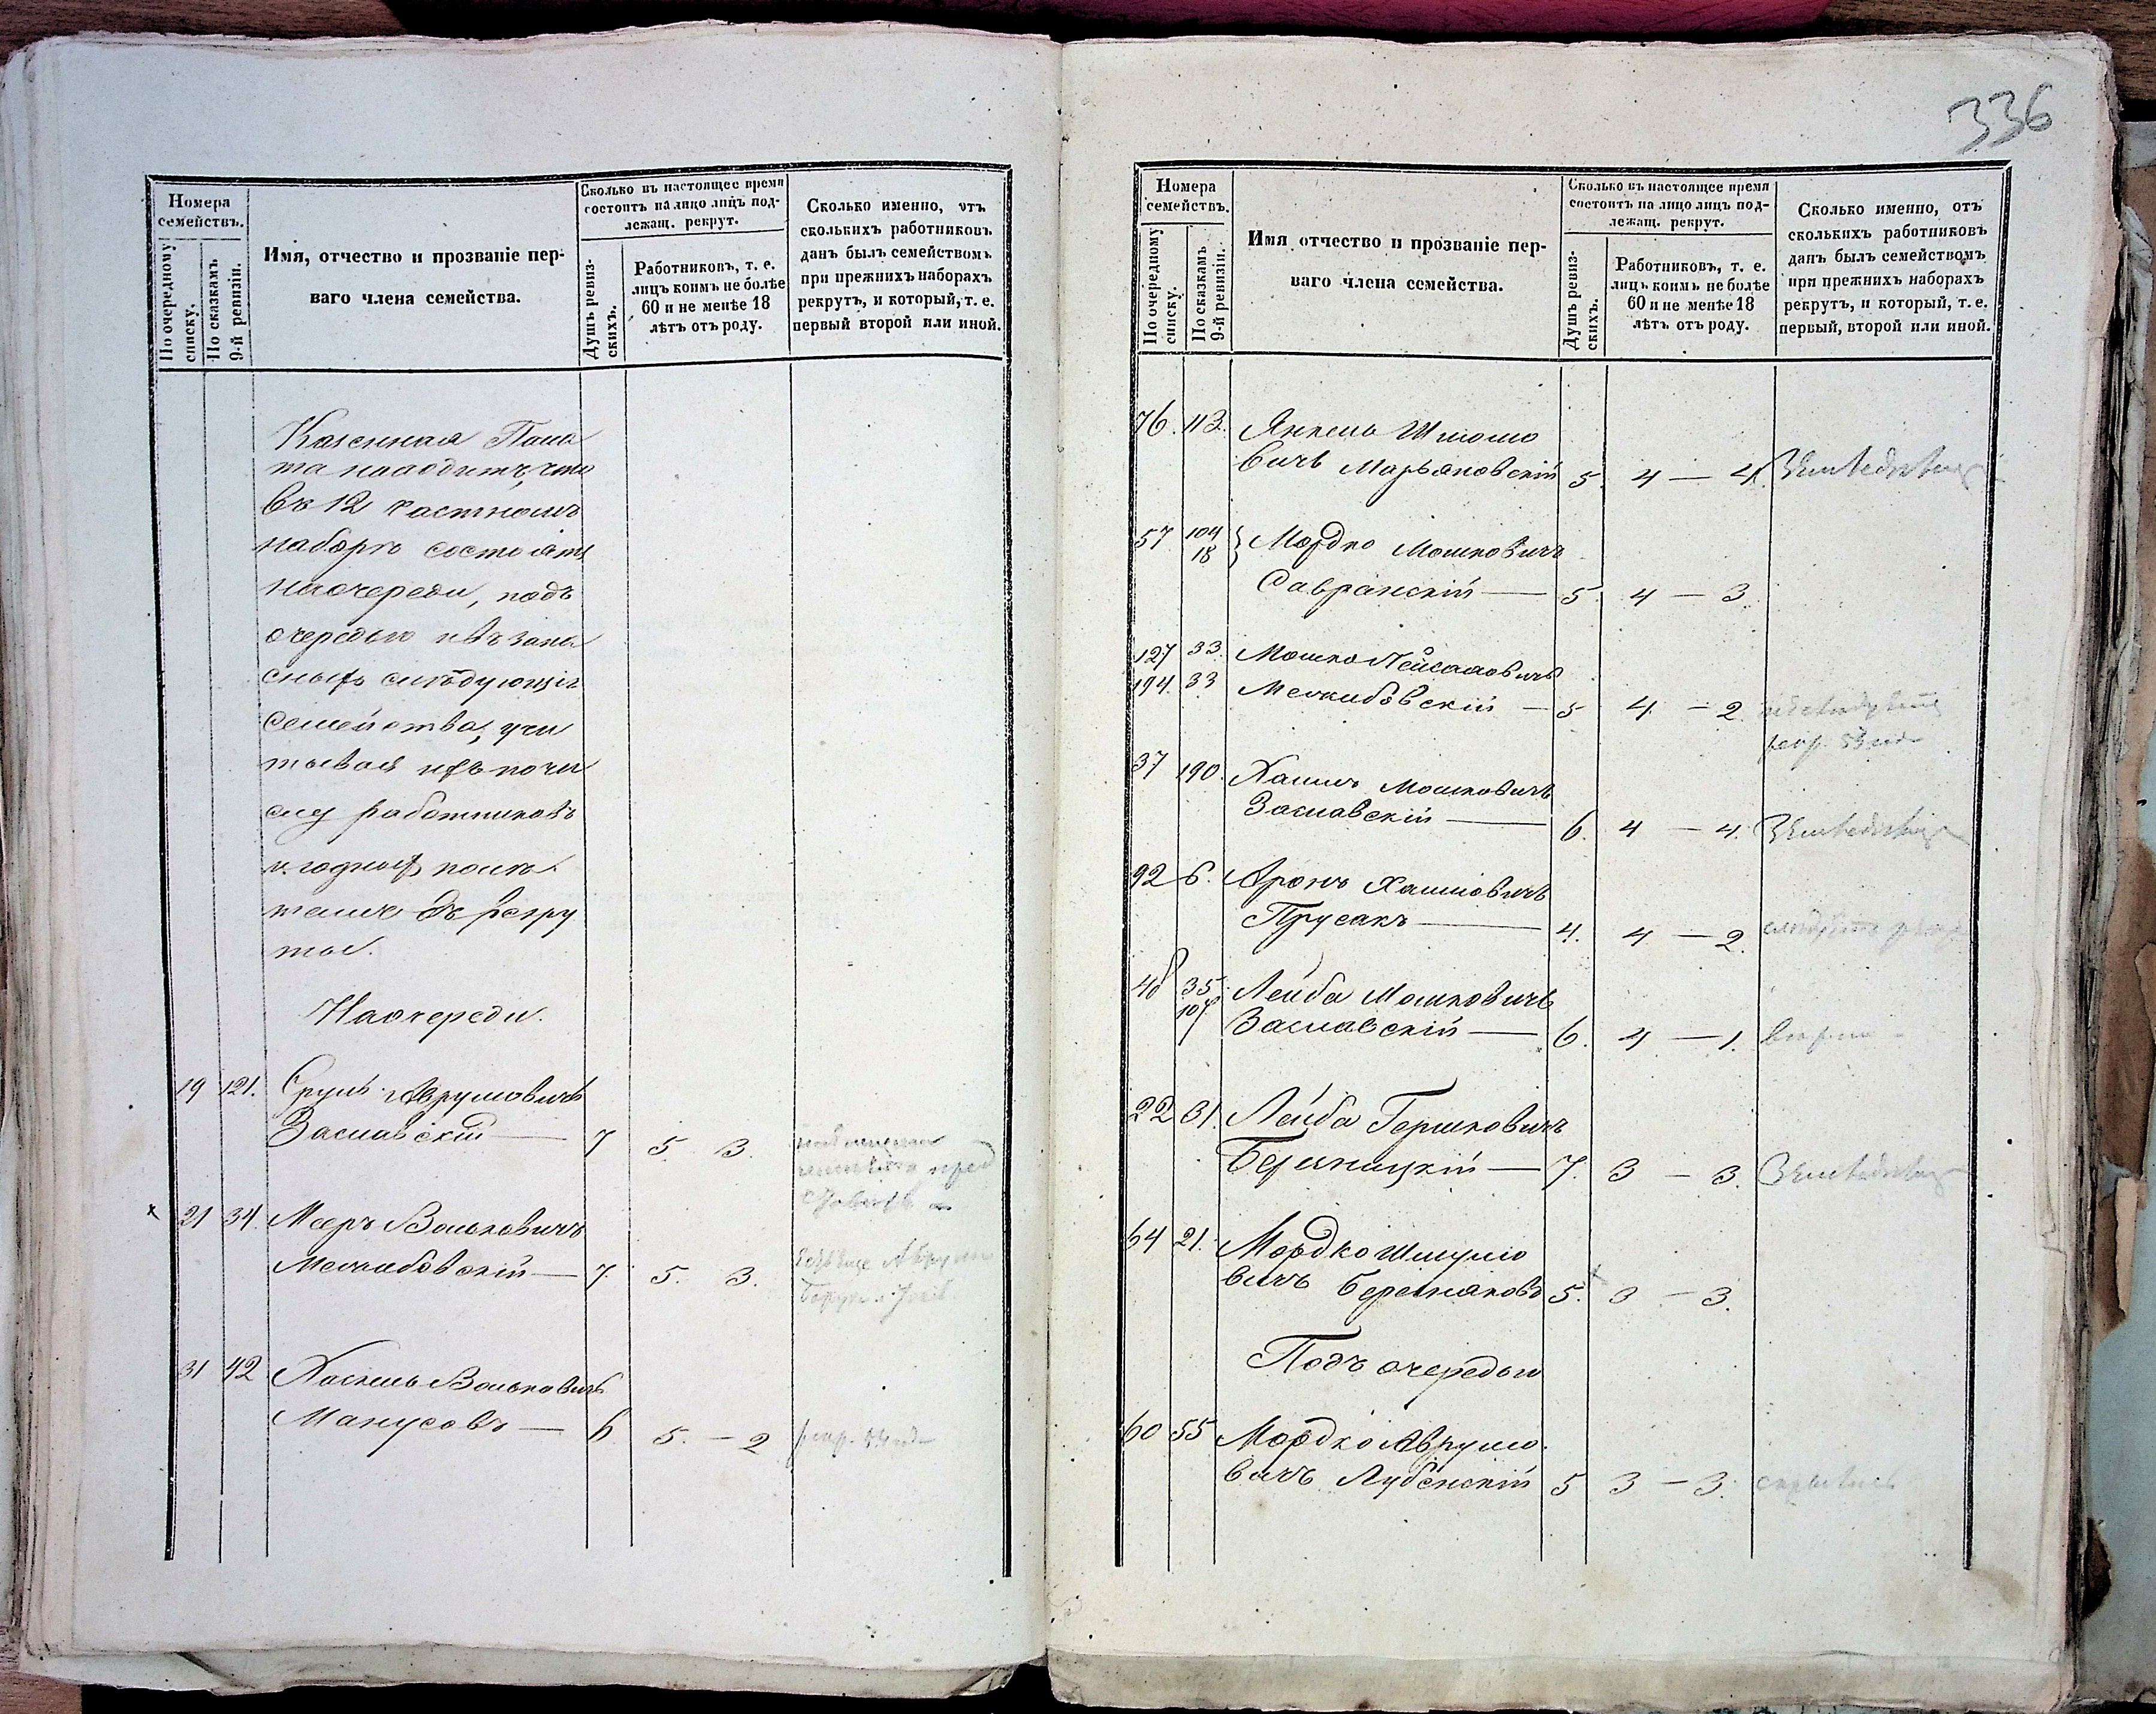 336
Номера
семействъ.
По очередному
списку.
По сказкамъ
9-й ревизіи.
Имя, отчество и прозваніе пер-
ваго члена семейства.
Сколько въ настоящее время
состоитъ на лицо лицъ под-
лежащ. рекрут.
Душъ ревиз-
скихъ.
Работниковъ, т. е.
лицъ коимъ не болѣе
60 и не менѣе 18
лѣтъ отъ роду.
Сколько именно, отъ
сколькихъ работниковъ
данъ былъ семействомъ
при прежнихъ наборахъ
рекрутъ, и который, т. е.
первый второй или иной.
Казенная Пала
та находитъ, что
въ 12 частномъ
наборѣ состоятъ
на очереди, подъ
очередью и въ запа
сныхъ слѣдующія
семейства, учи
тывая ихъ по чи
слу работниковъ
и годныхъ
въ рекру
ты.
На очереди.
19 121. Сруль Аврумовичъ
Заславскій — 7 5. 3.
21 34. Мееръ Вольковичъ
Межибовскій — 7. 5. 3.
31 42 Хаскель Вольковичъ
Манусовъ — 6 5. — 2
Номера
семействъ.
По очередному
списку.
По сказкамъ
9-й ревизіи.
Имя отчество и прозваніе пер-
ваго члена семейства.
Сколько въ настоящее время
состоитъ на лицо лицъ под-
лежащ. рекрут.
Душъ ревиз-
скихъ.
Работниковъ, т. е.
лицъ коимъ не болѣе
60 и не менѣе 18
лѣтъ отъ роду.
Сколько именно, отъ
сколькихъ работниковъ
данъ былъ семействомъ
при прежнихъ наборахъ
рекрутъ, и который, т. е.
первый, второй или иной.
76. 113. Янкель Шмулю
вичъ Марьяновскій 5. 4 — 4.
57 104 Мордко Мошковичъ
18
Савранскій — 5. 4 — 3.
127 33. Мошко Пейсаховичъ
194. 33 Межибовскій — 5 4. — 2.
37 190. Хаимъ Мошковичъ
Заславскій — 6. 4 — 4.
92 6. Аронъ Хаимовичъ
Прусакъ — 4. 4 — 2.
48 35 Лейба Мошковичъ
107 Заславскій — 6. 4 — 1.
22 31. Лейба Гершковичъ
— 7. 3 — 3.
64 21. Мордко Шмулю
вичъ 5. 3 — 3.
Подъ очередью
60 55 Мордко Аврумо
вичъ Лубенскій 5 3 — 3.